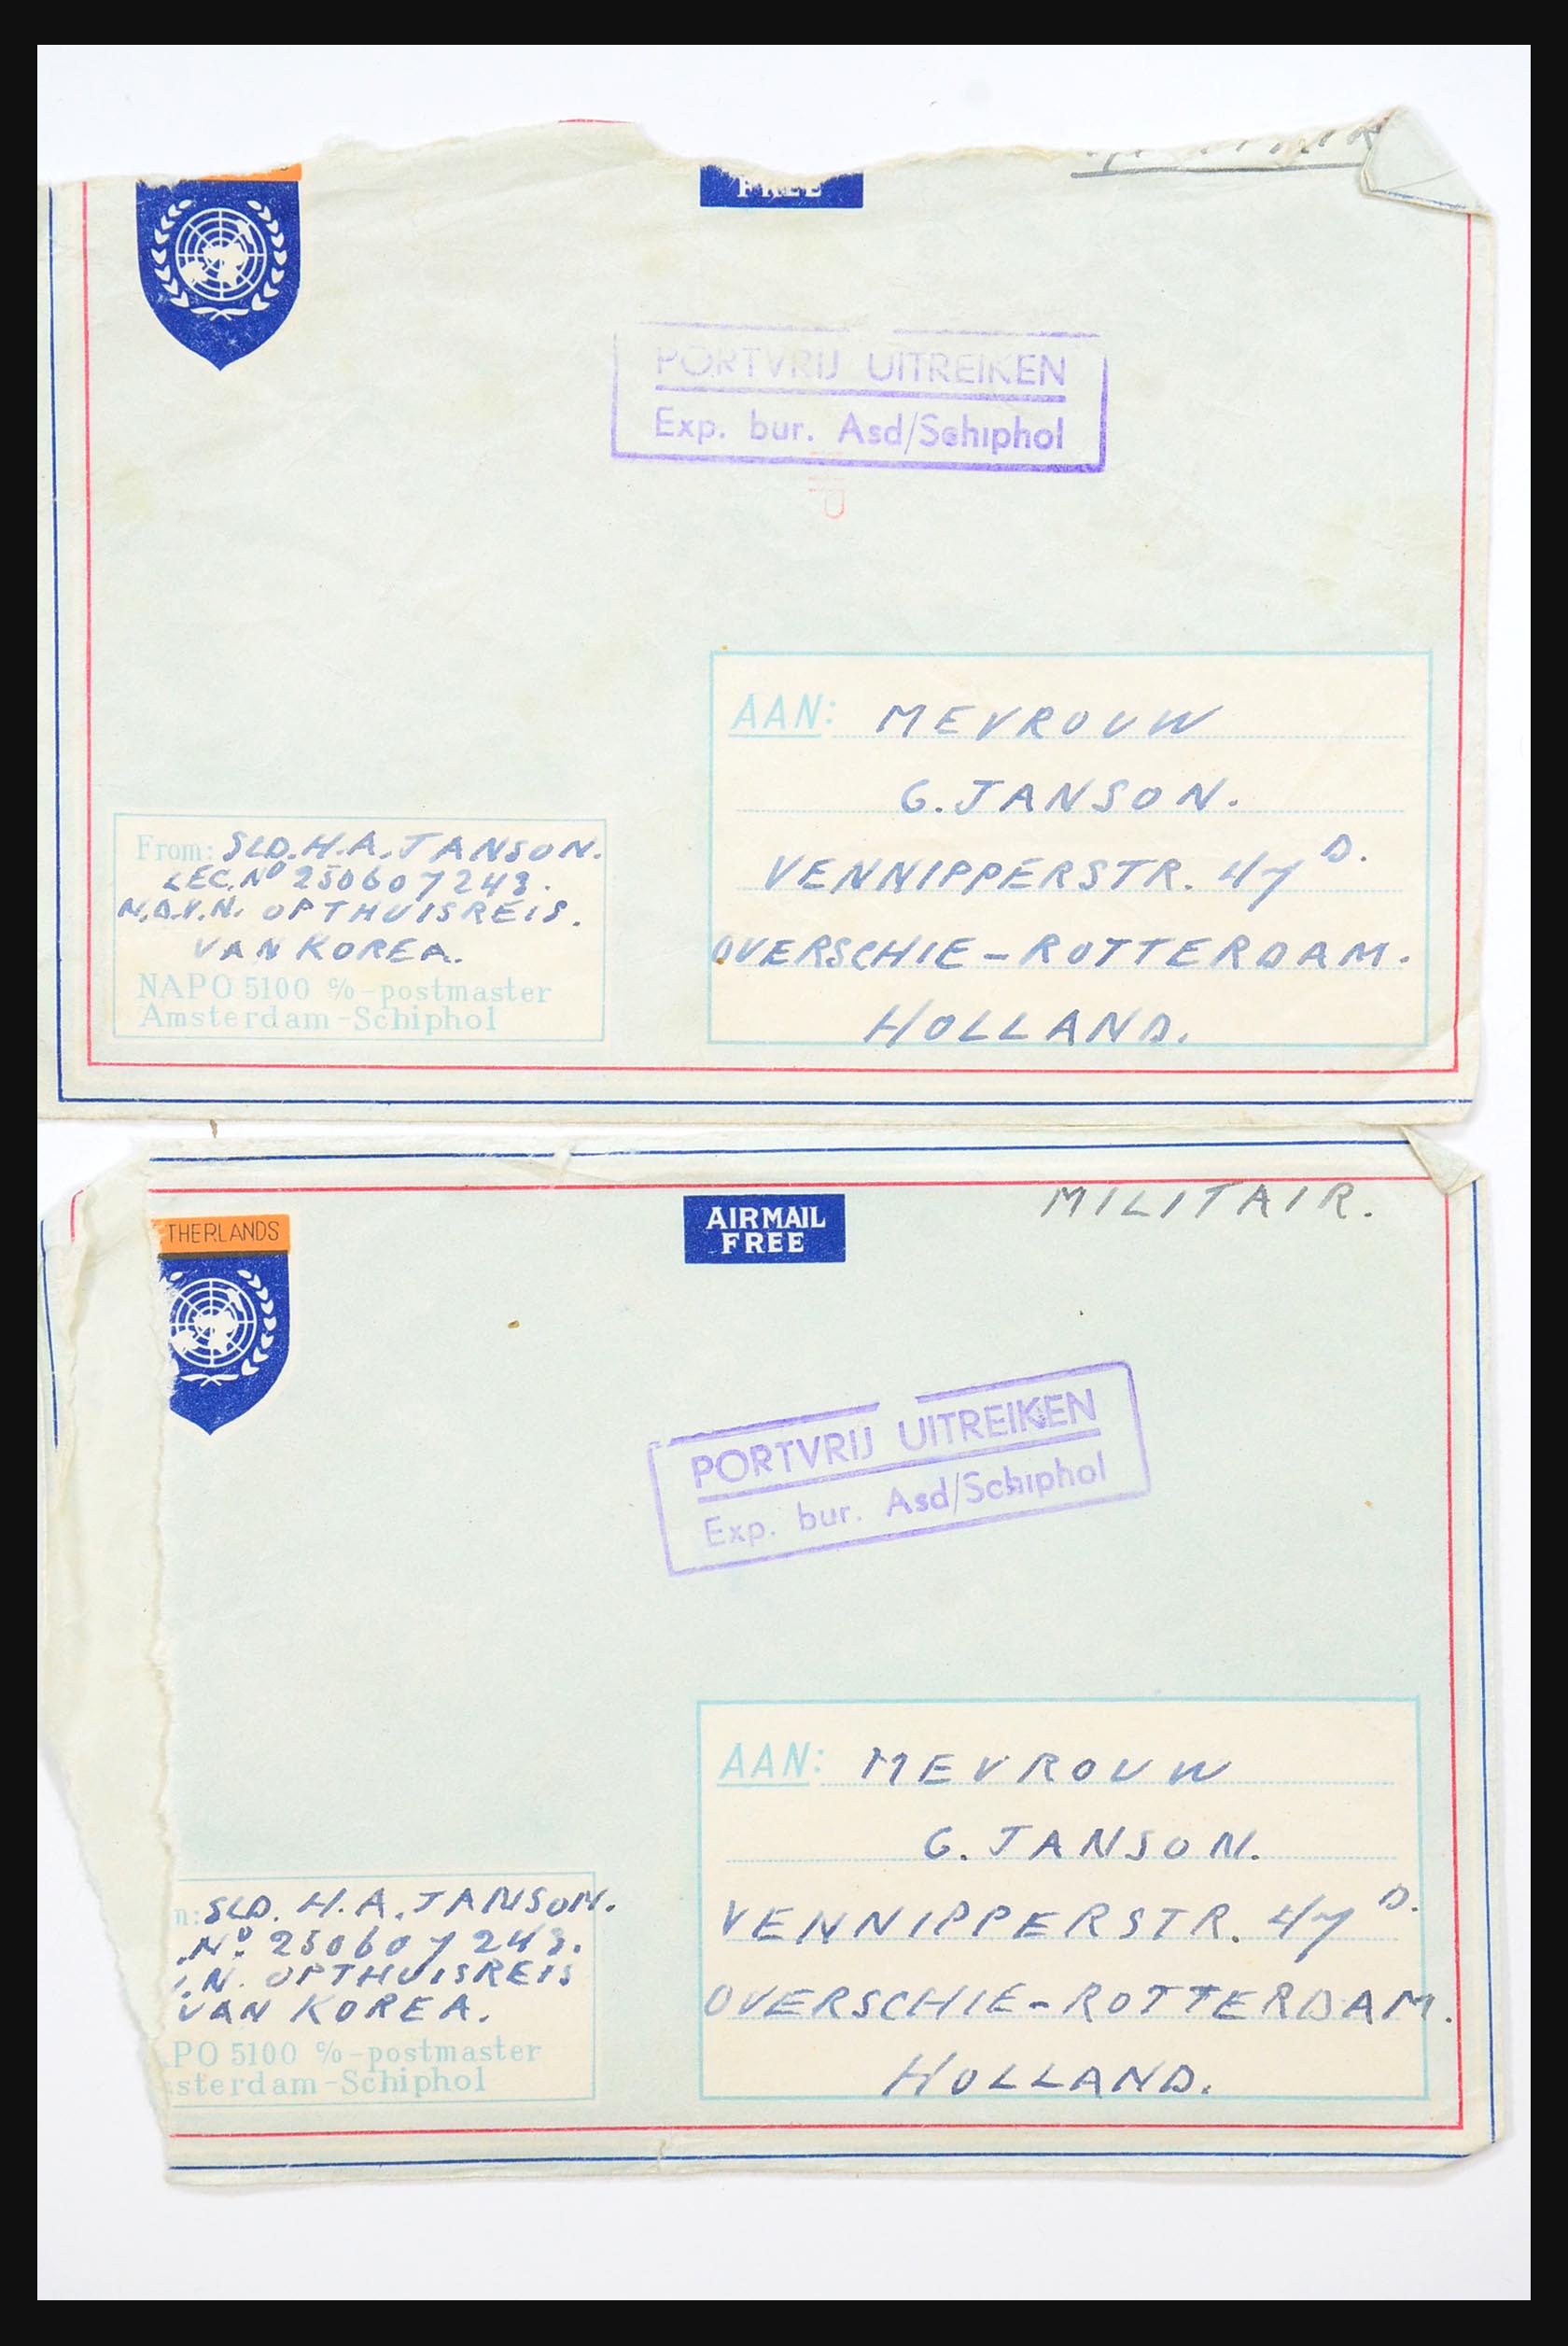 FREE
PORTVRIJ UITREIKEN
Exp. bur. Asd/Schiphol
AAN: MEVROUW
G. JANSON.
VENNIPPERSTR. 47 D.
OVERSCHIE - ROTTERDAM.
HOLLAND.
From: SLD. H.A. JANSON.
LEG. No 250607243.
N.D.V.N. OPTHUISREIS.
VAN KOREA.
NAPO 5100 c/o - postmaster
Amsterdam - Schiphol
THERLANDS
AIRMAIL
FREE
MILITAIR.
PORTVRIJ UITREIKEN
Exp. bur. Asd/Schiphol
AAN: MEVROUW
G. JANSON.
VENNIPPERSTR. 47 D.
OVERSCHIE - ROTTERDAM.
HOLLAND.
m: SLD. H.A. JANSON.
.No. 250607243.
.N. OPTHUISREIS
VAN KOREA.
PO 5100 c/o - postmaster
sterdam - Schiphol